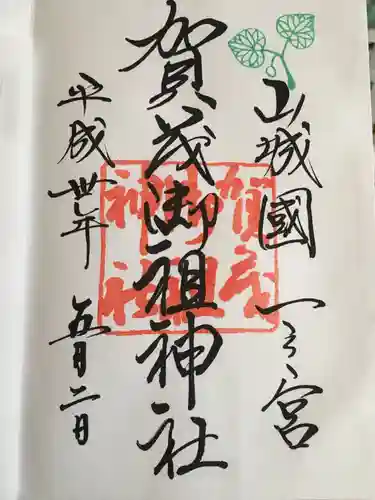 山城國 一之宮
賀茂御祖神社
平成卅年 五月二日
賀茂
御祖
神社